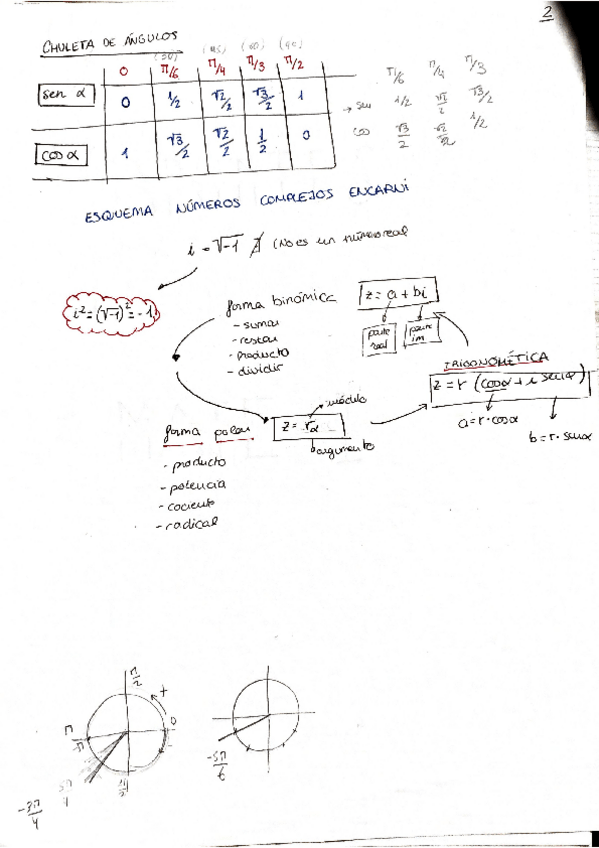 2
CHULETA DE ÁNGULOS
(30) (45) (60) (90)
0 π/6 π/4 π/3 π/2
sen α 0 1/2 √2/2 √3/2 1
cos α 1 √3/2 √2/2 1/2 0
π/6 π/4 π/3
→ sen 1/2 √2/2 √3/2
cos √3/2 √2/2 1/2
ESQUEMA NÚMEROS COMPLEJOS ENCARNI
i = √-1 ∄ (No es un número real
i² = (√-1)² = -1
forma binómica z = a + bi
- sumar
- restar
- producto
- dividir
parte real
parte im
TRIGONOMÉTICA
z = r (cosα + i senα)
a = r · cosα
b = r · senα
forma polar z = rα
módulo
argumento
- producto
- potencia
- cociente
- radical
π/2
+
0
π
5π/4
-3π/4
-5π/6